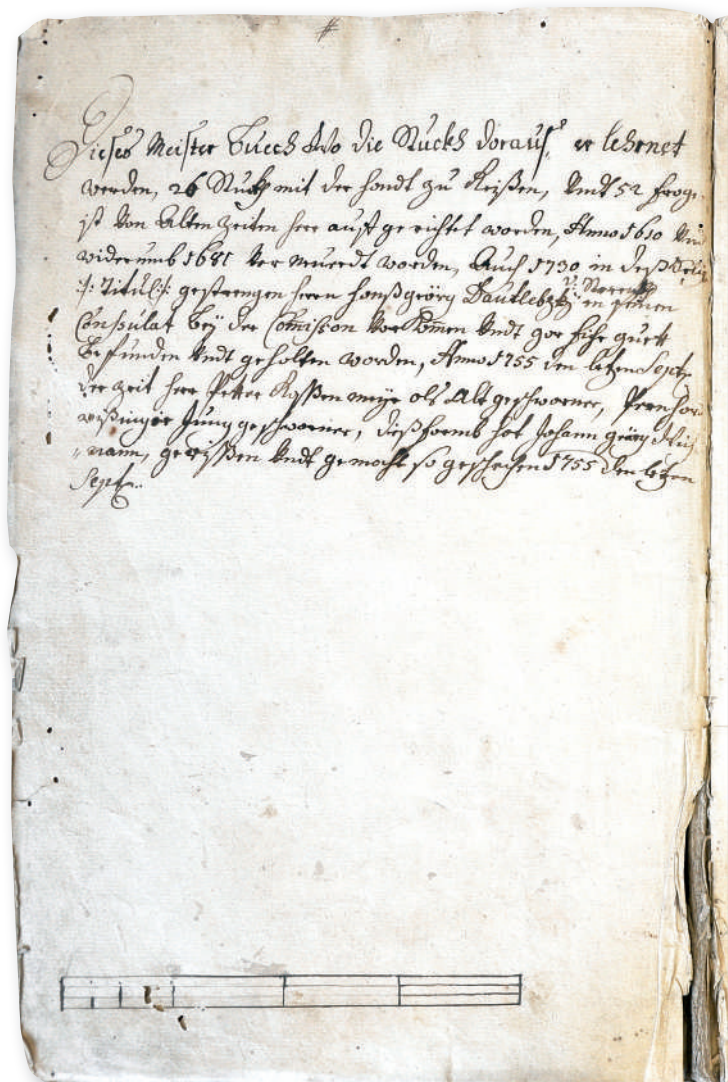 Dieses Meister Buech Wo die Stuckh doraus, er lehrnet
werden, 26 Stuckh mit der handt zu Reißen, Vndt 52 froge
ist Von Alten Zeiten herr auff gerichtet worden, Anno 1610 Vnd
widerumb 1681 Ver Neuerdt worden, Auch 1730 in deß
:/: Titul :/: gestrengen herrn Hanß geörg in seinen
Consulat beÿ der Comission Vorkomen Vndt gor guett
befunden Vndt geholten worden, Anno 1755 den letzen Septe
der Zeit herr Petter ols Alt geschworner,
Jung geschworner, dieß hot Johann geörg
mann, gerißen Vndt gemocht so geschechen 1755 den letzen
Septe.